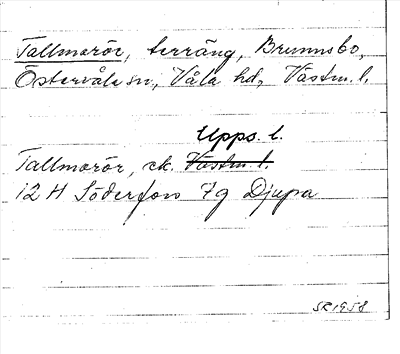 Tallmorör, terräng, Brunnsbo,
Östervåla sn, Våla hd, Västm. l.
Upps. l.
Tallmorör, ek. Västm. l.
12 H Söderfors 7g Djupa
SR 1958